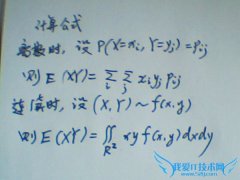 计算公式
离散时,设 P(X=xᵢ, Y=yⱼ)=pᵢⱼ
则 E(XY)= Σᵢ Σⱼ xᵢ yⱼ pᵢⱼ
连续时,设 (X,Y)~f(x,y)
则 E(XY)= ∬_R² xy f(x,y)dxdy
我爱IT技术网